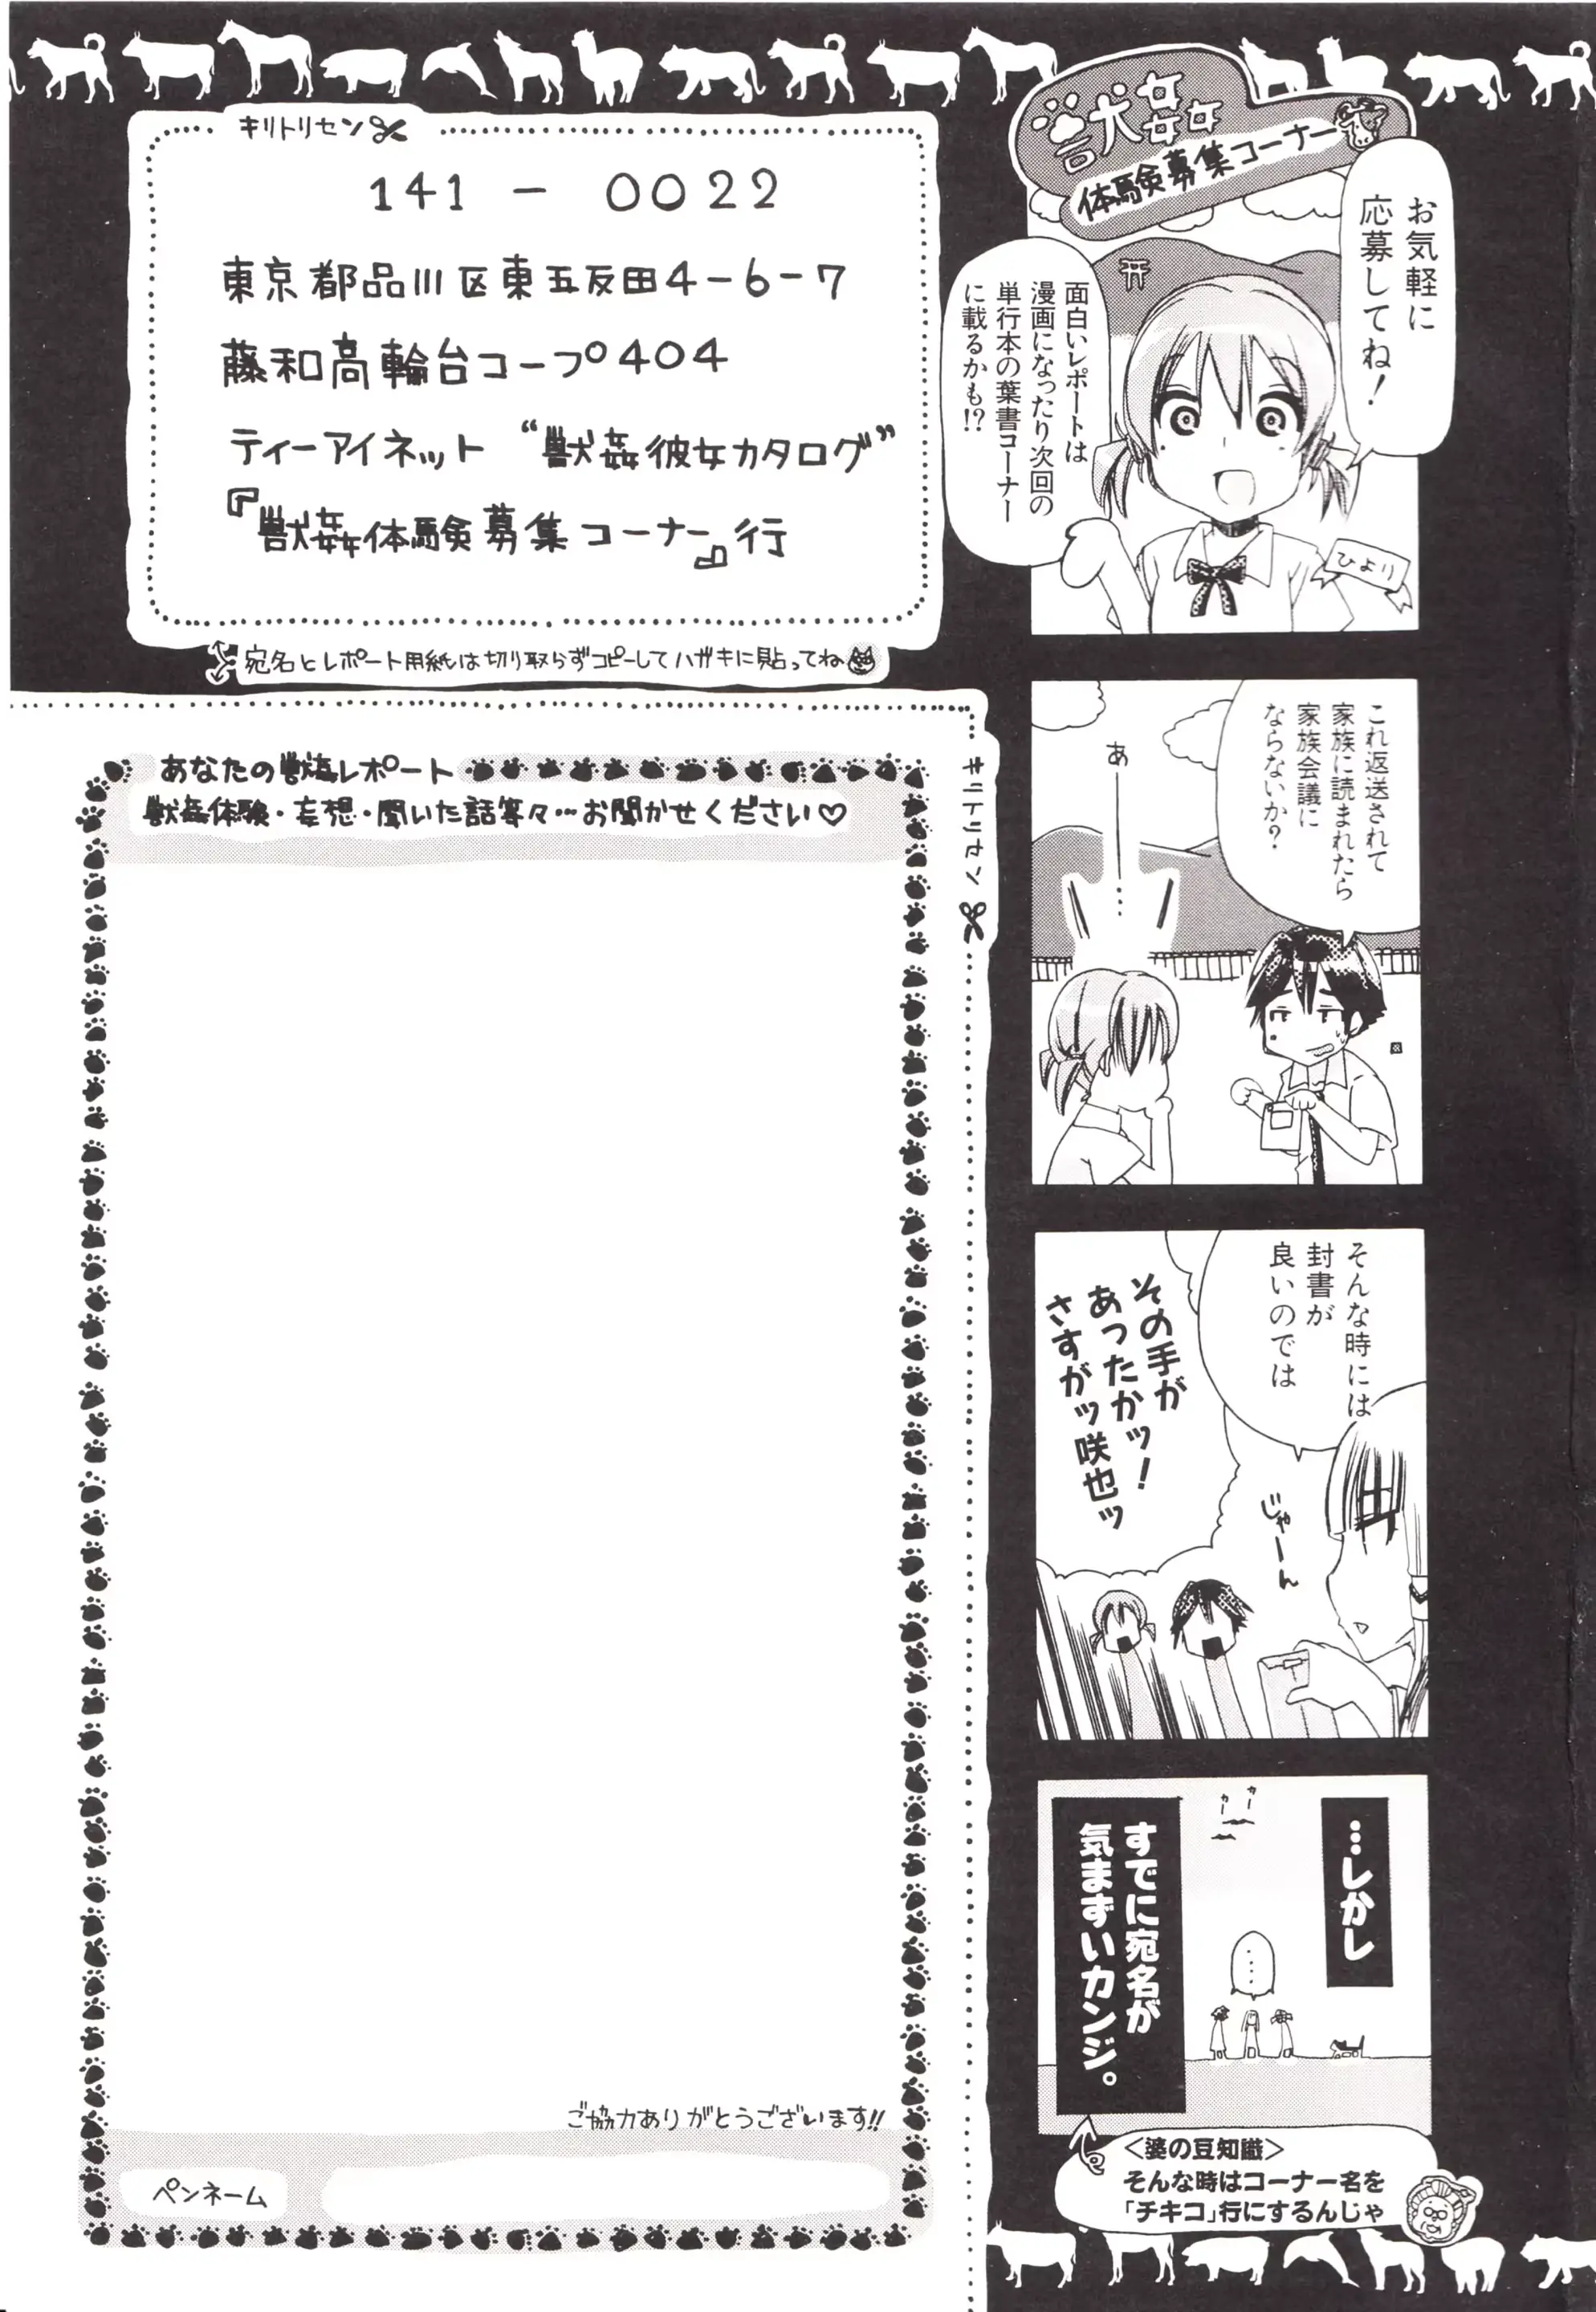 獣姦
体験募集コーナー
お気軽に
応募してね！
面白いレポートは
漫画になったり次回の
単行本の葉書コーナー
に載るかも!?
ひより
これ返送されて
家族に読まれたら
家族会議に
ならないか？
あ
―…
そんな時には
封書が
良いのでは
じゃーん
その手が
あったかッ！
さすがッ咲也ッ
…しかし
カー
カー
……
すでに宛名が
気まずいカンジ。
＜婆の豆知識＞
そんな時はコーナー名を
「チキコ」行にするんじゃ
キリトリセン
141－0022
東京都品川区東五反田4－6－7
藤和高輪台コープ404
ティーアイネット “獣姦彼女カタログ”
『獣姦体験募集コーナー』行
宛名とレポート用紙は切り取らずコピーしてハガキに貼ってね
キリトリセン
あなたの獣姦レポート
獣姦体験・妄想・聞いた話等々…お聞かせください♡
ご協力ありがとうございます!!
ペンネーム